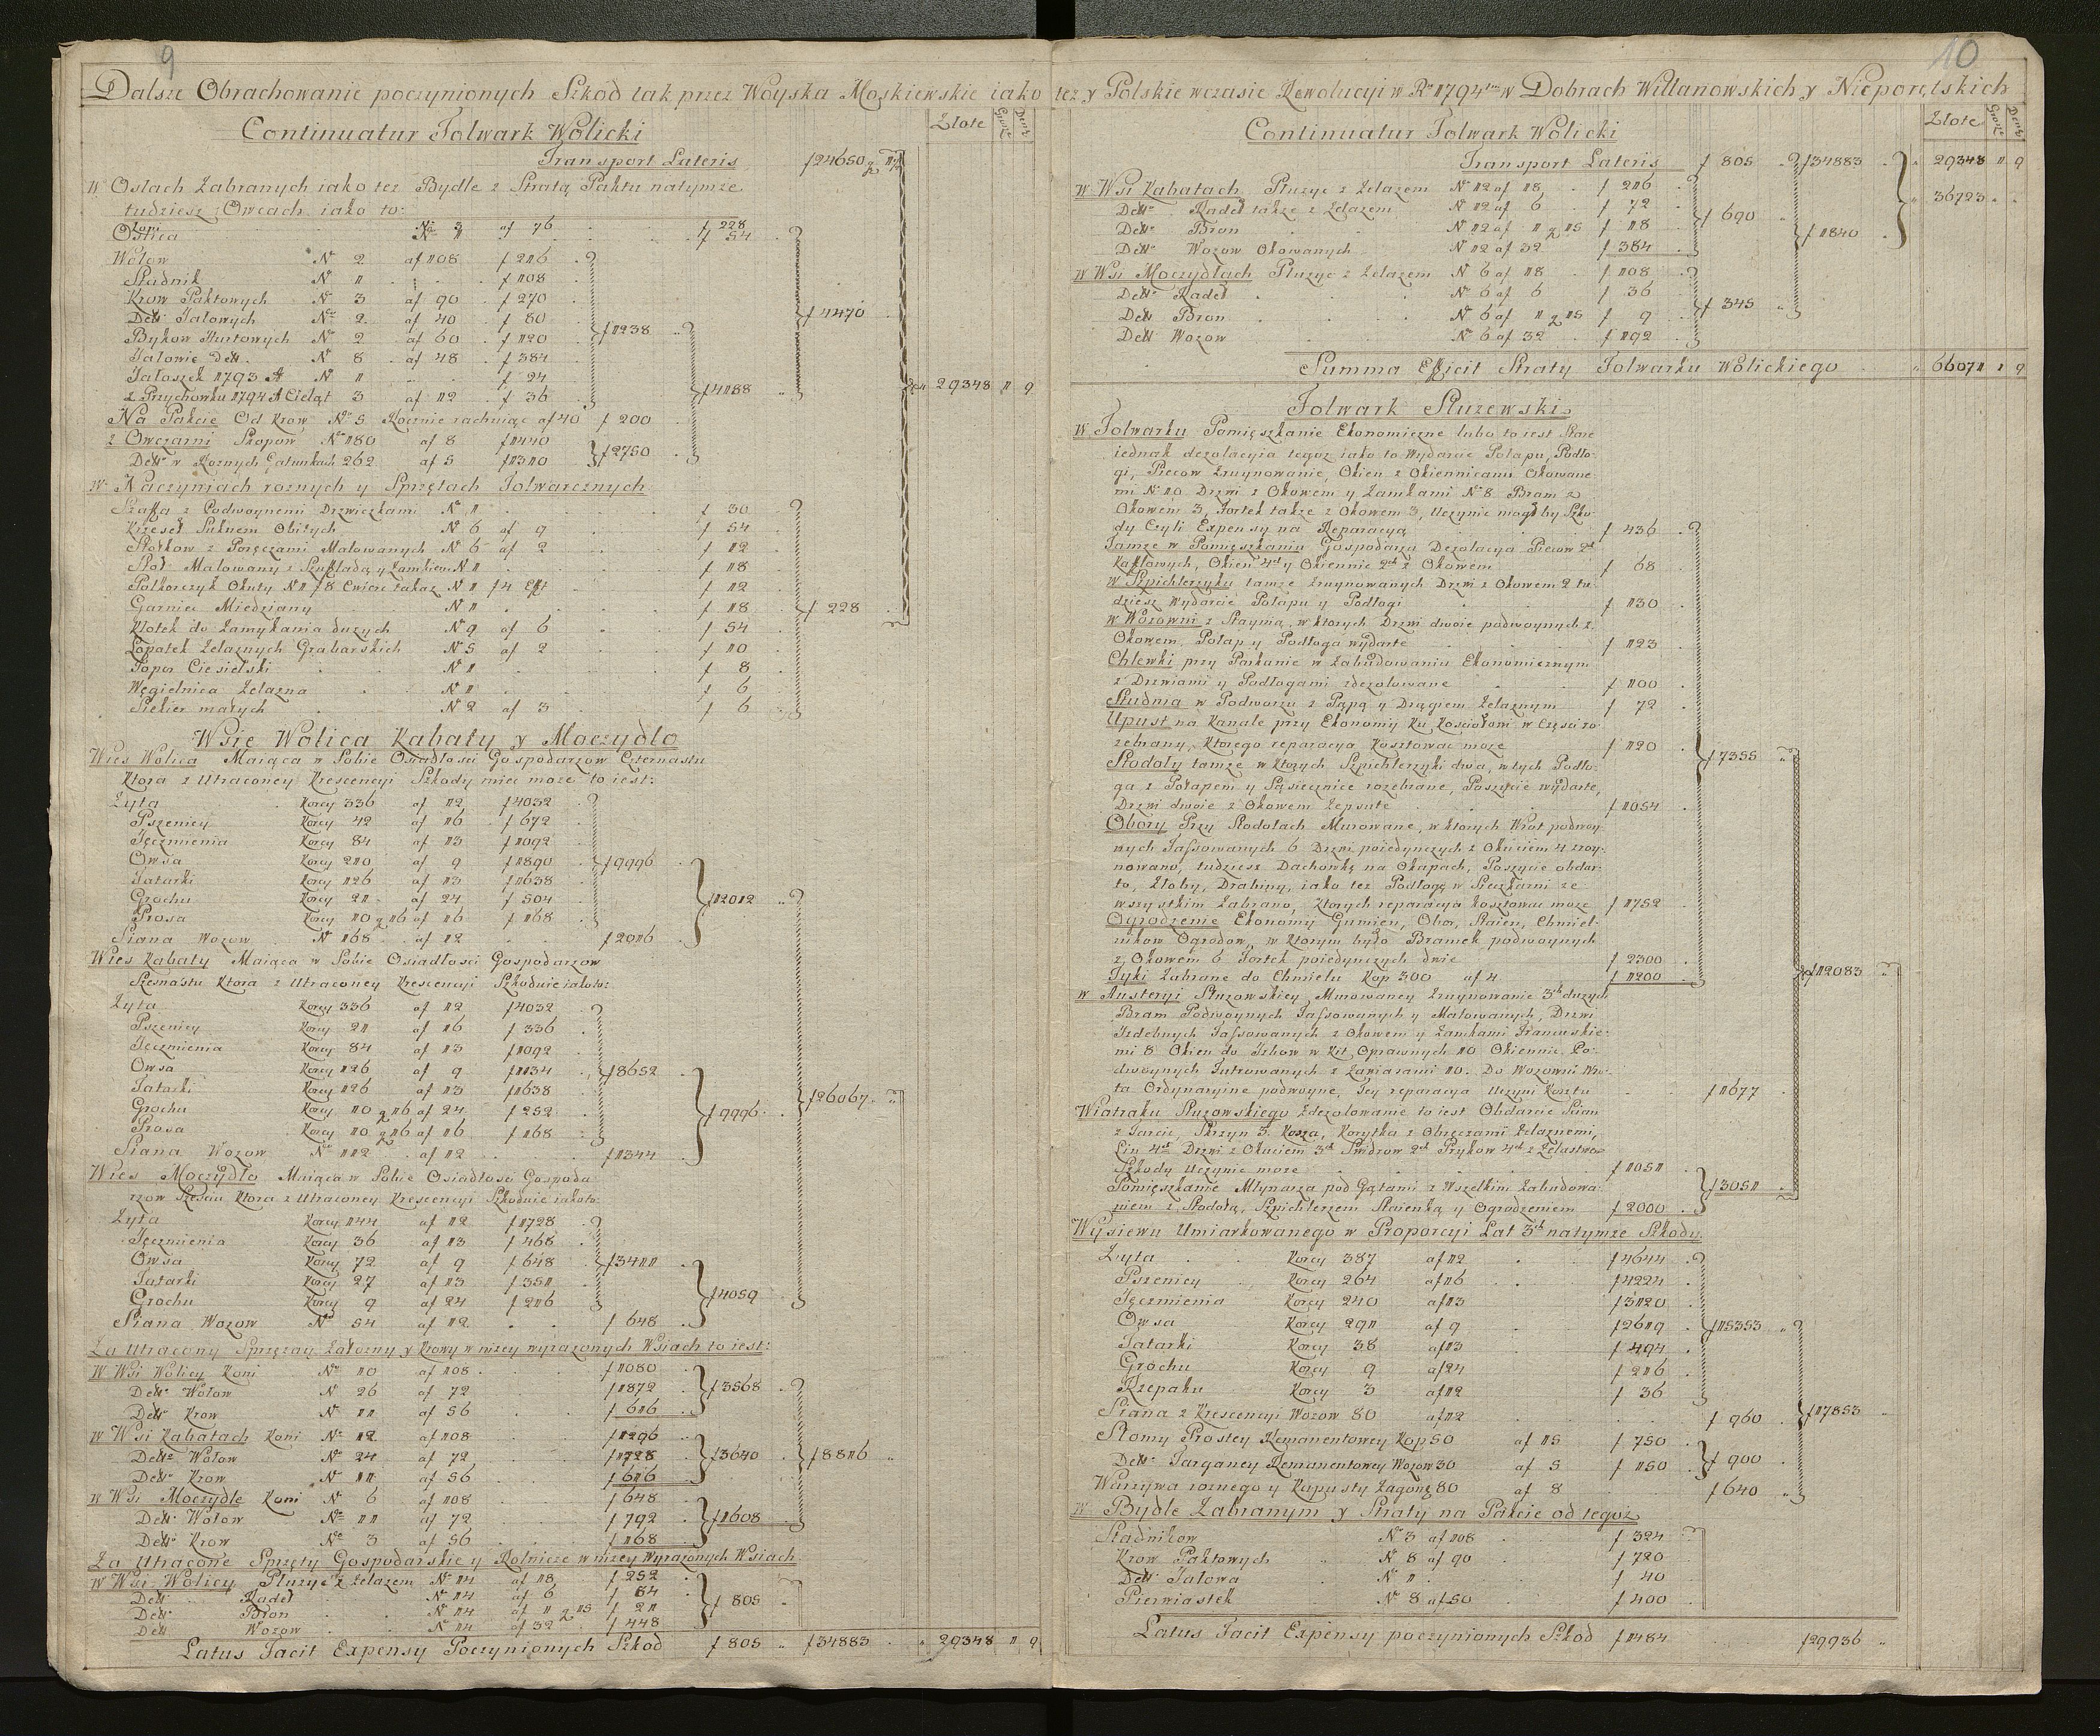 9
Dalsze Obrachowanie poczynionych Szkod tak przez Woyska Moskiewskie iako
Continuatur Folwark Wolicki
Złote Grosze Denr
Transport Lateris f 24650
W Osłach Zabranych iako też Bydle z Stratą Paktu natymże
tudziesz Owcach iako to:
N 3 af 76 f 228
Oslica N 1 f 54
Wołow N 2 af 108 f 216
Stadnik N 1 f 108
Krow Paktowych N 3 af 90 f 270
Detto Jałowych N 2 af 40 f 80 f 1238
Bykow Hurtowych N 2 af 60 f 120 f 4470
Jałowic Dett. N 8 af 48 f 384
Jałoszek 1793 A N 1 f 24
z Przychowku 1794 A Cieląt 3 af 12 f 36 f 4188 29348 1 9
Na Pakcie Od Krow N 5 Rocznie rachuiąc af 40 f 200
z Owczarni Skopow N 180 af 8 f 1440
Detto w Roznych Gatunkach 262 af 5 f 1310 f 2750
W Naczyniach roznych y Sprzętach Folwarcznych
Szaffa z Podwoynemi Drzwiczkami N 1 f 30
Krzeseł Suknem Obitych N 6 af 9 f 54
Stołkow z Poręczami Malowanych N 6 af 2 f 12
Stoł Malowany z Szufladą y Zamkiem N 1 f 18
Pułkorczyk Okuty N 1 f 8 Cwierc takaz N 1 f 4 f 12
Garniec Miedziany N 1 f 18 f 228
Kłotek do Zamykania duzych N 9 af 6 f 54
Łopatek Zelaznych Grabarskich N 5 af 2 f 10
Topor Ciesielski N 1 f 8
Węgielnica Zelazna N 1 f 6
Siekier małych N 2 af 3 f 6
Wsie Wolica Kabaty y Moczydło
Wies Wolica Maiąca w Sobie Osiadłosci Gospodarzow Czternastu
Ktora z Utraconey Krescencyi Szkody miec moze to iest:
Zyta Korcy 336 af 12 f 4032
Pszenicy Korcy 42 af 16 f 672
Jęczmienia Korcy 84 af 13 f 1092
Owsa Korcy 210 af 9 f 1890 f 9996
Tatarki Korcy 126 af 13 f 1638
Grochu Korcy 21 af 24 f 504 f 12012
Prosa Korcy 10 g 16 af 16 f 168
Siana Wozow N 168 af 12 f 2016
Wies Kabaty Maiąca w Sobie Osiadłosci Gospodarzow
Szesnastu Ktora z Utraconey Krescencyi Szkoduie iakoto:
Zyta Korcy 336 af 12 f 4032
Pszenicy Korcy 21 af 16 f 336
Jęczmienia Korcy 84 af 13 f 1092
Owsa Korcy 126 af 9 f 1134 f 8652
Tatarki Korcy 126 af 13 f 1638
Grochu Korcy 10 g 16 af 24 f 252 f 9996 f 26067
Prosa Korcy 10 g 16 af 16 f 168
Siana Wozow N 112 af 12 f 1344
Wies Moczydło Maiąca w Sobie Osiadłosci Gospoda
rzow Szesciu Ktora z Utraconey Krescencyi Szkoduie iakoto:
Zyta Korcy 144 af 12 f 1728
Jęczmienia Korcy 36 af 13 f 468
Owsa Korcy 72 af 9 f 648 f 3411
Tatarki Korcy 27 af 13 f 351
Grochu Korcy 9 af 24 f 216 f 4059
Siana Wozow N 54 af 12 f 648
Za Utracony Sprzęzay Załozny y Krowy w nizey wyrazonych Wsiach to iest:
W Wsi Wolicy Koni N 10 af 108 f 1080
Detto Wołow N 26 af 72 f 1872 f 3568
Detto Krow N 11 af 56 f 616
W Wsi Kabatach Koni N 12 af 108 f 1296
Detto Wołow N 24 af 72 f 1728 f 3640 f 8816
Detto Krow N 11 af 56 f 616
W Wsi Moczydle Koni N 6 af 108 f 648
Detto Wołow N 11 af 72 f 792 f 1608
Detto Krow N 3 af 56 f 168
Za Utracone Sprzęty Gospodarskie y Rolnicze w nizey Wyrazonych Wsiach
W Wsi Wolicy Płuzyc z Zelazem N 14 af 18 f 252
Dett Radeł N 14 af 6 f 84
Dett Bron N 14 af 1 g 15 f 21 f 805
Dett Wozow N 14 af 32 f 448
Latus Facit Expensy Poczynionych Szkod f 805 f 34883 29348 1 9
10
też y Polskie wczasie Rewolucyi w Rku 1794tym w Dobrach Willanowskich y Nieporętskich
Continuatur Folwark Wolicki
Złote Grosze Denr
Transport Lateris f 805 f 34883 29348 1 9
W Wsi Kabatach Płuzyc z Zelazem N 12 af 18 f 216 36723
Detto Radeł takze z Zelazem N 12 af 6 f 72
Detto Bron N 12 af 1 g 15 f 18 f 690
Detto Wozow Okowanych N 12 af 32 f 384 f 1840
W Wsi Moczydłach Płuzyc z Zelazem N 6 af 18 f 108
Detto Radeł N 6 af 6 f 36
Dett Bron N 6 af 1 g 15 f 9 f 345
Dett Wozow N 6 af 32 f 192
Summa Efficit Straty Folwarku Wolickiego 66071 1 9
Folwark Słuzewski
W Folwarku Pomięszkanie Ekonomiczne lubo to iest Stare
iednak dezolacyia tegoz iako to Wydarcie Połapu, Podło-
gi, Piecow Zruynowanie, Okien z Okiennicami Okowane
mi N 10 Drzwi z Okowem y Zamkami N 8 Bram z
Okowem 3, Fortek takze z Okowem 3, Uczynic mogłby Szko-
dy Czyli Expensy na Reparacyą f 436
Tamze w Pomięszkaniu Gospodarza Dezolacya Piecow 2ch
Kaflowych, Okien 4ch y Okiennic 2ch z Okowem f 68
w Szpichlerzyku tamze Zruynowanych Drzwi z Okowem 2 tu-
dziesz Wydarcie Połapu y Podłogi f 130
w Wozowni z Staynią, w ktorych Drzwi dwoie podwoynych z
Okowem, Połap y Podłoga wydarte f 123
Chlewki przy Parkanie w Zabudowaniu Ekonomicznym
z Drzwiami y Podłogami zdezolowane f 100
Studnia w Podworzu z Pąpą y Drągiem Zelaznym f 72
Upust na Kanale przy Ekonomiy Ku Kosciołowi w Częsci ro-
zebrany, Ktorego reparacya Kosztowac moze f 120
Stodoły tamze w ktorych Szpichlerzyki dwa, w tych Podło- f 7355
ga z Połapem y Sąsiecznice rozebrane, Poszycie wydarte,
Drzwi dwoie z Okowem Zepsute f 1054
Obory Przy Stodołach Murowane, w ktorych Wrot podwoy-
nych Fassowanych 6 Drzwi poiedynczych z Okuciem 4 zroy-
nowano, tudziesz Dachowkę na Okapach, Poszycie obdar-
to, Złoby, Drabiny, iako też Podłogę w Sieczkarni ze
wszystkim Zabrano, Ktorych reparacya kosztowac moze f 1752
Ogrodzenie Ekonomiy Gumien, Obor, Staien, Chmiel-
nikow Ogrodow, w ktorym było Bramek podwoynych
z Okowem 6 Fortek poiedynczych dwie f 2300
Tyki Zabrane do Chmielu Kop 300 af 4 f 1200 f 12083
w Austeryi Słuzowskiey Murowaney Zruynowanie 3ch duzych
Bram Podwoynych Fassowanych y Malowanych, Drzwi
Izdebnych Fassowanych z Okowem y Zamkami Francuskie-
mi 8 Okien do Izbow w Kit Oprawnych 10 Okiennic Po-
dwoynych Futrowanych z Zawiasami 10. Do Wozowni Wro-
ta Ordynaryine podwoyne, Tey reparacya Uczyni Kosztu f 1677
Wiatraku Słuzowskiego Zdezolowanie to iest Obdarcie Scian
z Tarcic, Skrzyn 3. Kosza, Korytka z Obręczami Zelaznemi,
Lin 4ch Drzwi z Okuciem 3ch Swidrow 2ch Prykow 4ch z Zelastwem
Szkody Uczynic moze f 1051
Pomięszkanie Młynarza pod Gątami z Wszelkim Zabudowa- f 3051
niem z Stodołą, Szpichlerzem Staienką y Ogrodzeniem f 2000
Wysiewu Umiarkowanego w Proporcyi Lat 3ch natymze Szkody
Zyta Korcy 387 af 12 f 4644
Pszenicy Korcy 264 af 16 f 4224
Jęczmienia Korcy 240 af 13 f 3120
Owsa Korcy 291 af 9 f 2619 f 15353
Tatarki Korcy 38 af 13 f 494
Grochu Korcy 9 af 24 f 216
Rzepaku Korcy 3 af 12 f 36
Siana z Krescencyi Wozow 80 af 12 f 960 f 17853
Słomy Prostey Remanentowey Kop 50 af 15 f 750
Dett Targaney Remanentowey Wozow 30 af 5 f 150 f 900
Warzywa roznego y Kapusty Zagonę 80 af 8 f 640
W Bydle Zabranym y Straty na Pakcie od tegoz
Stadnikow N 3 af 108 f 324
Krow Paktowych N 8 af 90 f 720
Dett Jałowa N 1 f 40
Pierwiastek N 8 af 50 f 400
Latus Facit Expensy poczynionych Szkod f 1484 f 29936